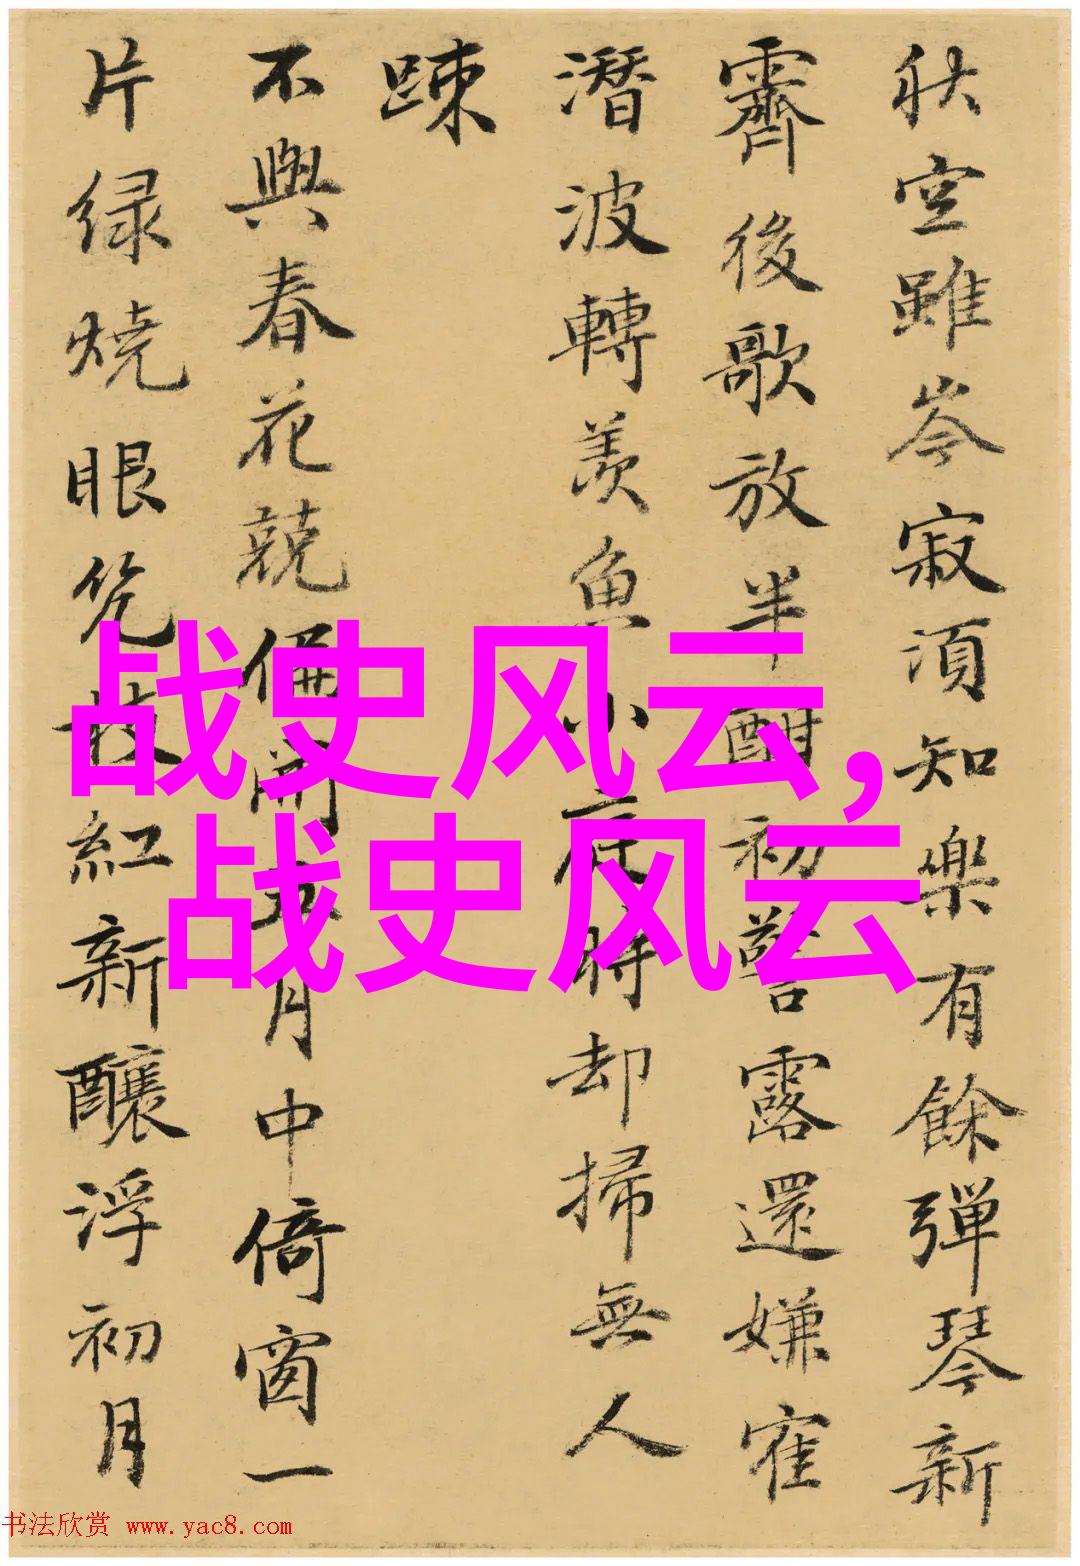 秋空雖岑寂須知樂有餘彈琴新
霽後歌放半酣初警露還嫌寉
潛波轉羨魚小庭時却掃無人
踈
不與春花競偏開五月中倚窗一
片绿燒眼笐枝紅新釀浮初月
战史风云,
战史风云
书法欣赏 www.yac8.com